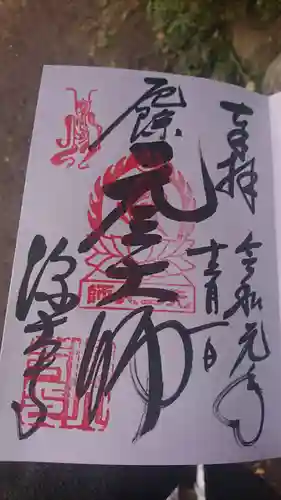 奉拝
令和元年
十二月一日
厄除
元三大師
深大寺